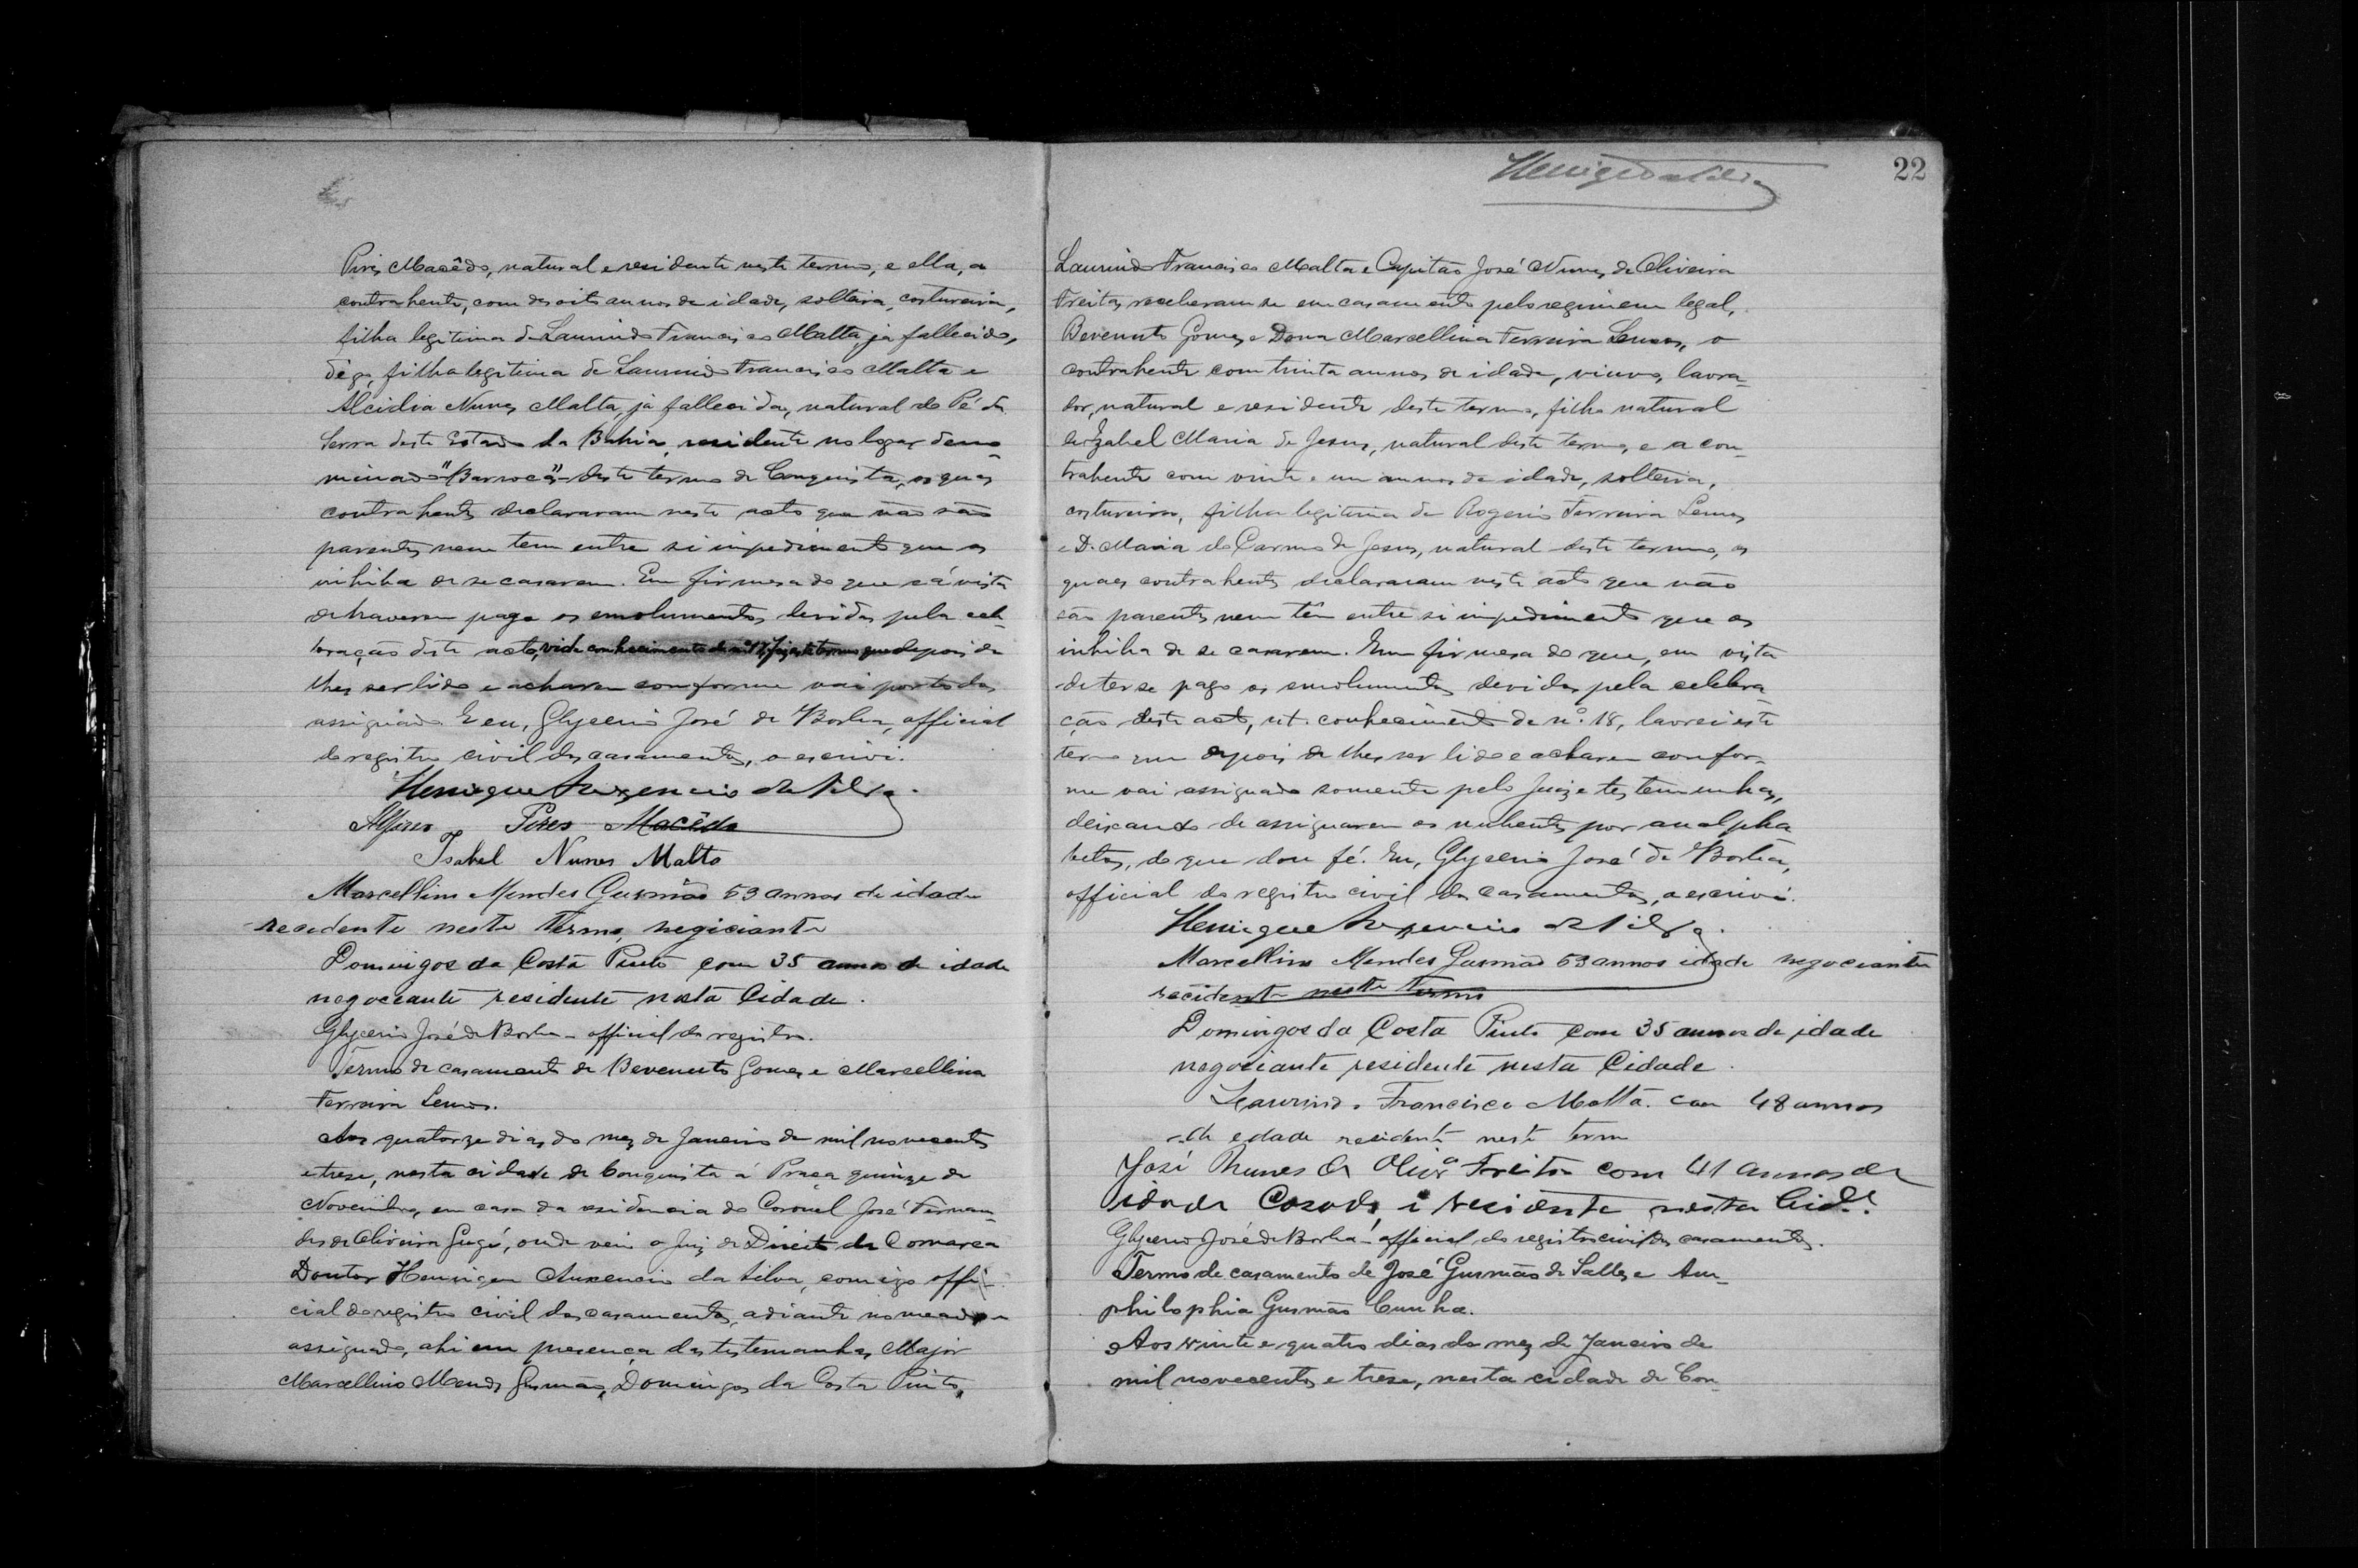 Pires Macêdo, natural e residente neste termo, e ella, a
contrahente, com desoito annos de idade, solteira, costureira,
filha legitima de Laurindo Francisco Malta, já fallecido,
digo, filha legitima de Laurindo Francisco Malta e
Alcidia Nunes Malta, já fallecida, natural do Pé da
Serra deste Estado da Bahia, residente no logar deno-
minado "Barroca" deste termo de Conquista, os quaes
contrahentes declararam neste acto que não são
parentes nem tem entre si impedimento que os
inhiba de se casarem. Em firmesa do que e á vista
de haverem pago os emolumentos devidos pela cele-
bração deste acto, vide conhecimento de nº 17, fiz este termo que depois de
lhes ser lido e acharem conforme vai por todos
assignado. E eu, Glycerio José de Borba, official
do registro civil dos casamentos, o escrivi.
Henrique Auxencio da Silva.
Alfires Pires Macêdo
Isabel Nunes Malta
Marcellino Mendes Gusmão 53 annos de idade
recedente neste termo, negiciante
Domingos da Costa Pinto com 35 annos de idade
negociante residente nesta Cidade.
Glycerio José de Borba - official do registro.
Termo de casamento de Bevenuto Gomes e Marcellina
Ferreira Lemos.
Aos quatorze dias do mez de Janeiro de mil novecentos
e trese, nesta cidade de Conquista á Praça quinze de
Novembro, em casa da residencia do Coronel José Fernan-
des de Oliveira Gugé, onde veio o Juiz de Direito da Comarca
Doutor Henrique Auxencio da Silva, comigo offi-
cial do registro civil dos casamentos, adiante nomeado e
assignado, ahi em presença das testemunhas Major
Marcellino Mendes Gusmão, Domingos da Costa Pinto,
22
Laurindo Francisco Malta e Capitão José Nunes de Oliveira
Freitas, receberam-se em casamento pelo regimem legal,
Bevenuto Gomes e Dona Marcellina Ferreira Lemos, o
contrahente com trinta annos de idade, viuvo, lavra-
dor, natural e residente deste termo, filho natural
de Izabel Maria de Jesus, natural deste termo, e a con-
trahente com vinte e um annos de idade, solteira,
costureira, filha legitima de Rogerio Ferreira Lemos
e D. Maria do Carmo de Jesus, natural deste termo, os
quaes contrahentes declararam neste acto que não
são parentes nem têm entre si impedimento que os
inhiba de se casarem. Em firmesa do que, em vista
de ter se pago os emolumentos devidos pela celebra
ção deste acto, ut. conhecimento de nº. 18, lavrei este
termo que depois de lhes ser lido e acharem confor-
me vai assignado somente pelo Juiz e testemunhas,
deixando de assignarem os nubentes por analpha
betos, do que dou fé. Eu, Glycerio José de Borba,
official do registro civil dos casamentos, o escrivi.
Henrique Auxencio da Silva.
Marcellino Mendes Gusmão 53 annos idade negociante
recidente neste termo
Domingos da Costa Pinto com 35 annos de idade
negociante residente nesta Cidade.
Laurindo Francisco Malta. com 48 annos
de edade residente neste termo
José Nunes de Olivrª Freitas com 41 annos de
idade Casado, i recidente nesta Cidᵉ.
Glycerio José de Borba - official do registro civil dos casamentos.
Termo de casamento de José Gusmão de Salles e Am-
philophia Gusmão Cunha.
Aos vinte e quatro dias do mez de Janeiro de
mil novecentos e trese, nesta cidade de Con-